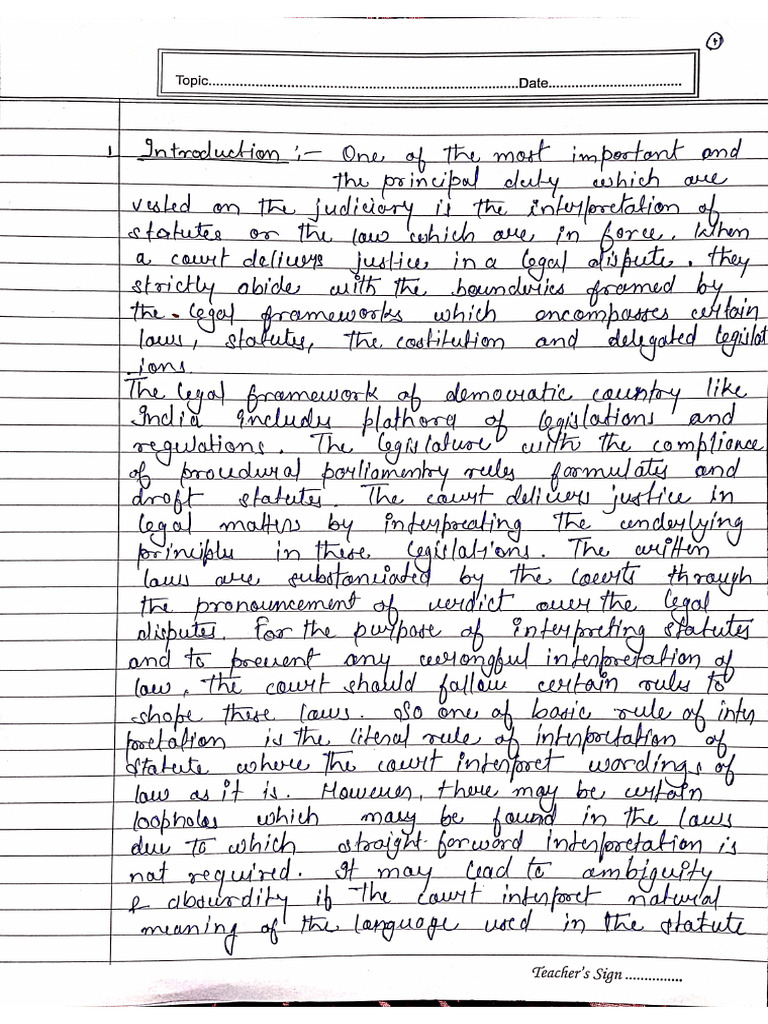 1
Topic..........................................................................Date................................
1 Introduction :- One of the most important and
the principal duty which are
vested on the judiciary is the interpretation of
statutes or the law which are in force. When
a court delivers justice in a legal dispute. they
strictly abide with the boundries framed by
the legal frameworks which encompasses certain
laws, statutes, the costitution and delegated legislat
ions.
The legal framework of democratic country like
India includes plathora of legislations and
regulations. The legislature with the compliance
of procedural parliamentry rules formulates and
draft statutes. The court delivers justice in
legal matters by interpreating the underlying
principles in these legislations. The written
laws are substanciated by the courts through
the pronouncement of verdict over the legal
disputes. For the purpose of interpreting statutes
and to prevent any wrongful interpretation of
law, the court should follow certain rules to
shape these laws. So one of basic rule of inter
pretation is the literal rule of interpretation of
statute where the court interpret wordings of
law as it is. However, there may be certain
loopholes which may be found in the laws
due to which straight-forward interpretation is
not required. It may lead to ambiguity
& absurdity if the court interpret natural
meaning of the language used in the statute
Teacher's Sign ...............